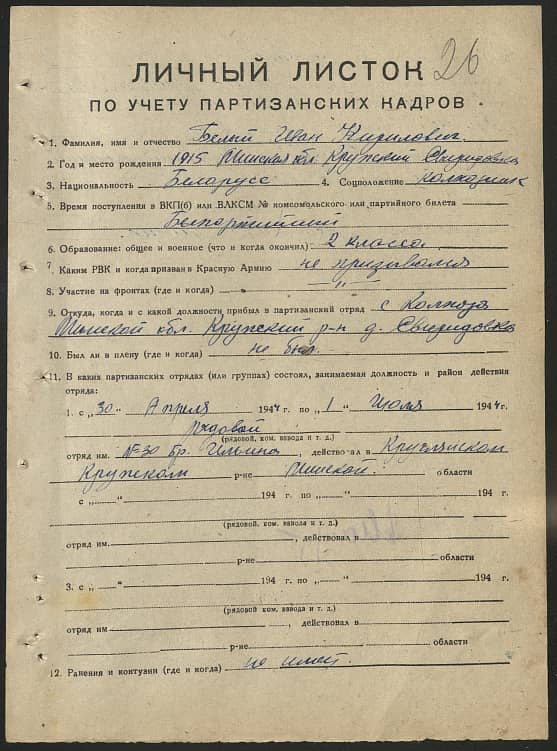 26
ЛИЧНЫЙ ЛИСТОК
ПО УЧЕТУ ПАРТИЗАНСКИХ КАДРОВ
1. Фамилия, имя и отчество Белый Иван Кирилович
2. Год и место рождения 1915 Минская обл. Крупский Свиридовка
3. Национальность Беларусс 4. Соцположение колхозник
5. Время поступления в ВКП(б) или ВЛКСМ № комсомольского или партийного билета
Беспартийный
6. Образование: общее и военное (что и когда окончил) 2 класса
7. Каким РВК и когда призван в Красную Армию не призывался
8. Участие на фронтах (где и когда) — „ —
9. Откуда, когда и с какой должности прибыл в партизанский отряд с Колхоза
Минской обл. Крупский р-н д. Свиридовка
10. Был ли в плену (где и когда) не был
11. В каких партизанских отрядах (или группах) состоял, занимаемая должность и район действия
отряда:
1. с „30“ Апреля 1944 г. по „1“ Июля 1944 г.
рядовой
(рядовой, ком. взвода и т. д.)
отряд им. №30 бр. Ильина, действовал в Круглянском
Крупском р-не Минской области
с „ “ 194 г. по „ “ 194 г.
(рядовой, ком. взвода и т. д.)
отряд им. , действовал в
р-не области
3. с „ “ 194 г. по „ “ 194 г.
(рядовой, ком. взвода и т. д.)
отряд им. , действовал в
р-не области
12. Ранения и контузии (где и когда) не имел.